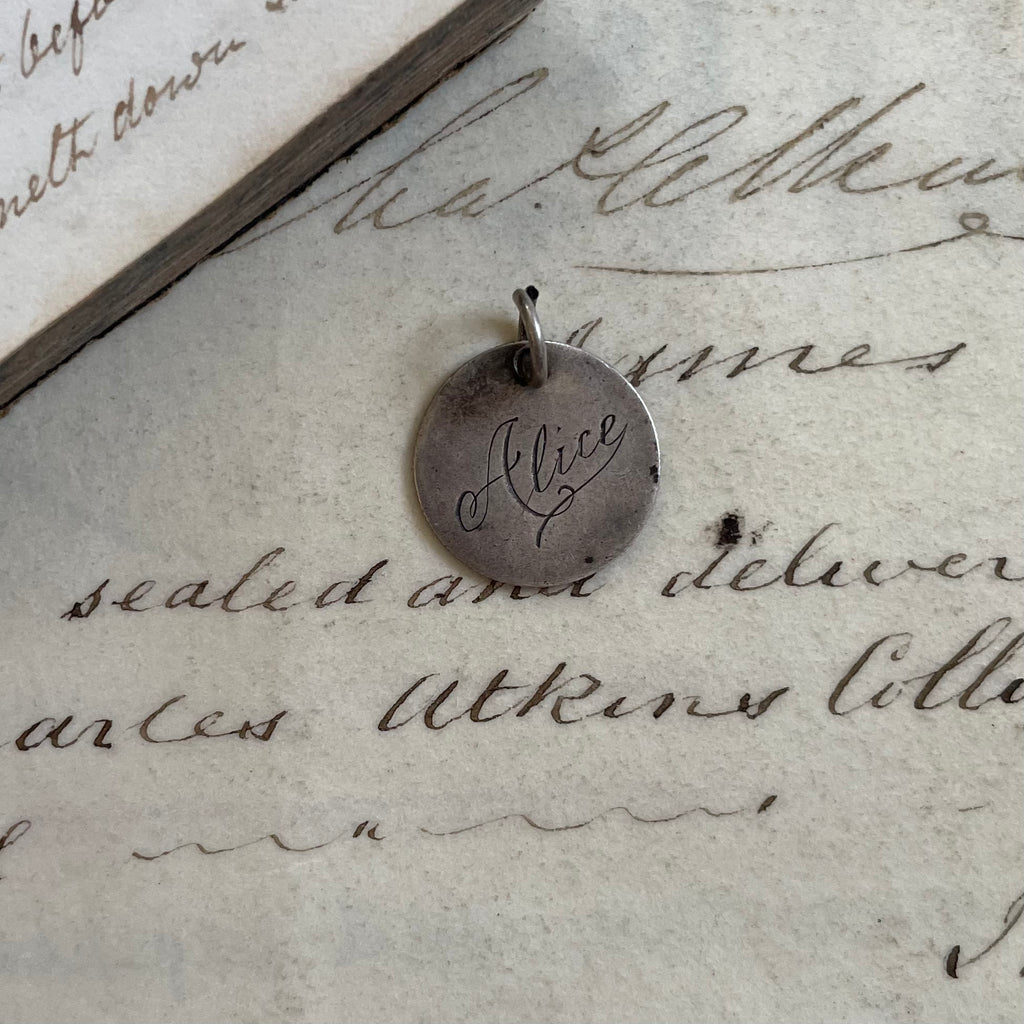 before
meth down
James
Alice
sealed and deliver
arles Atkins Colli